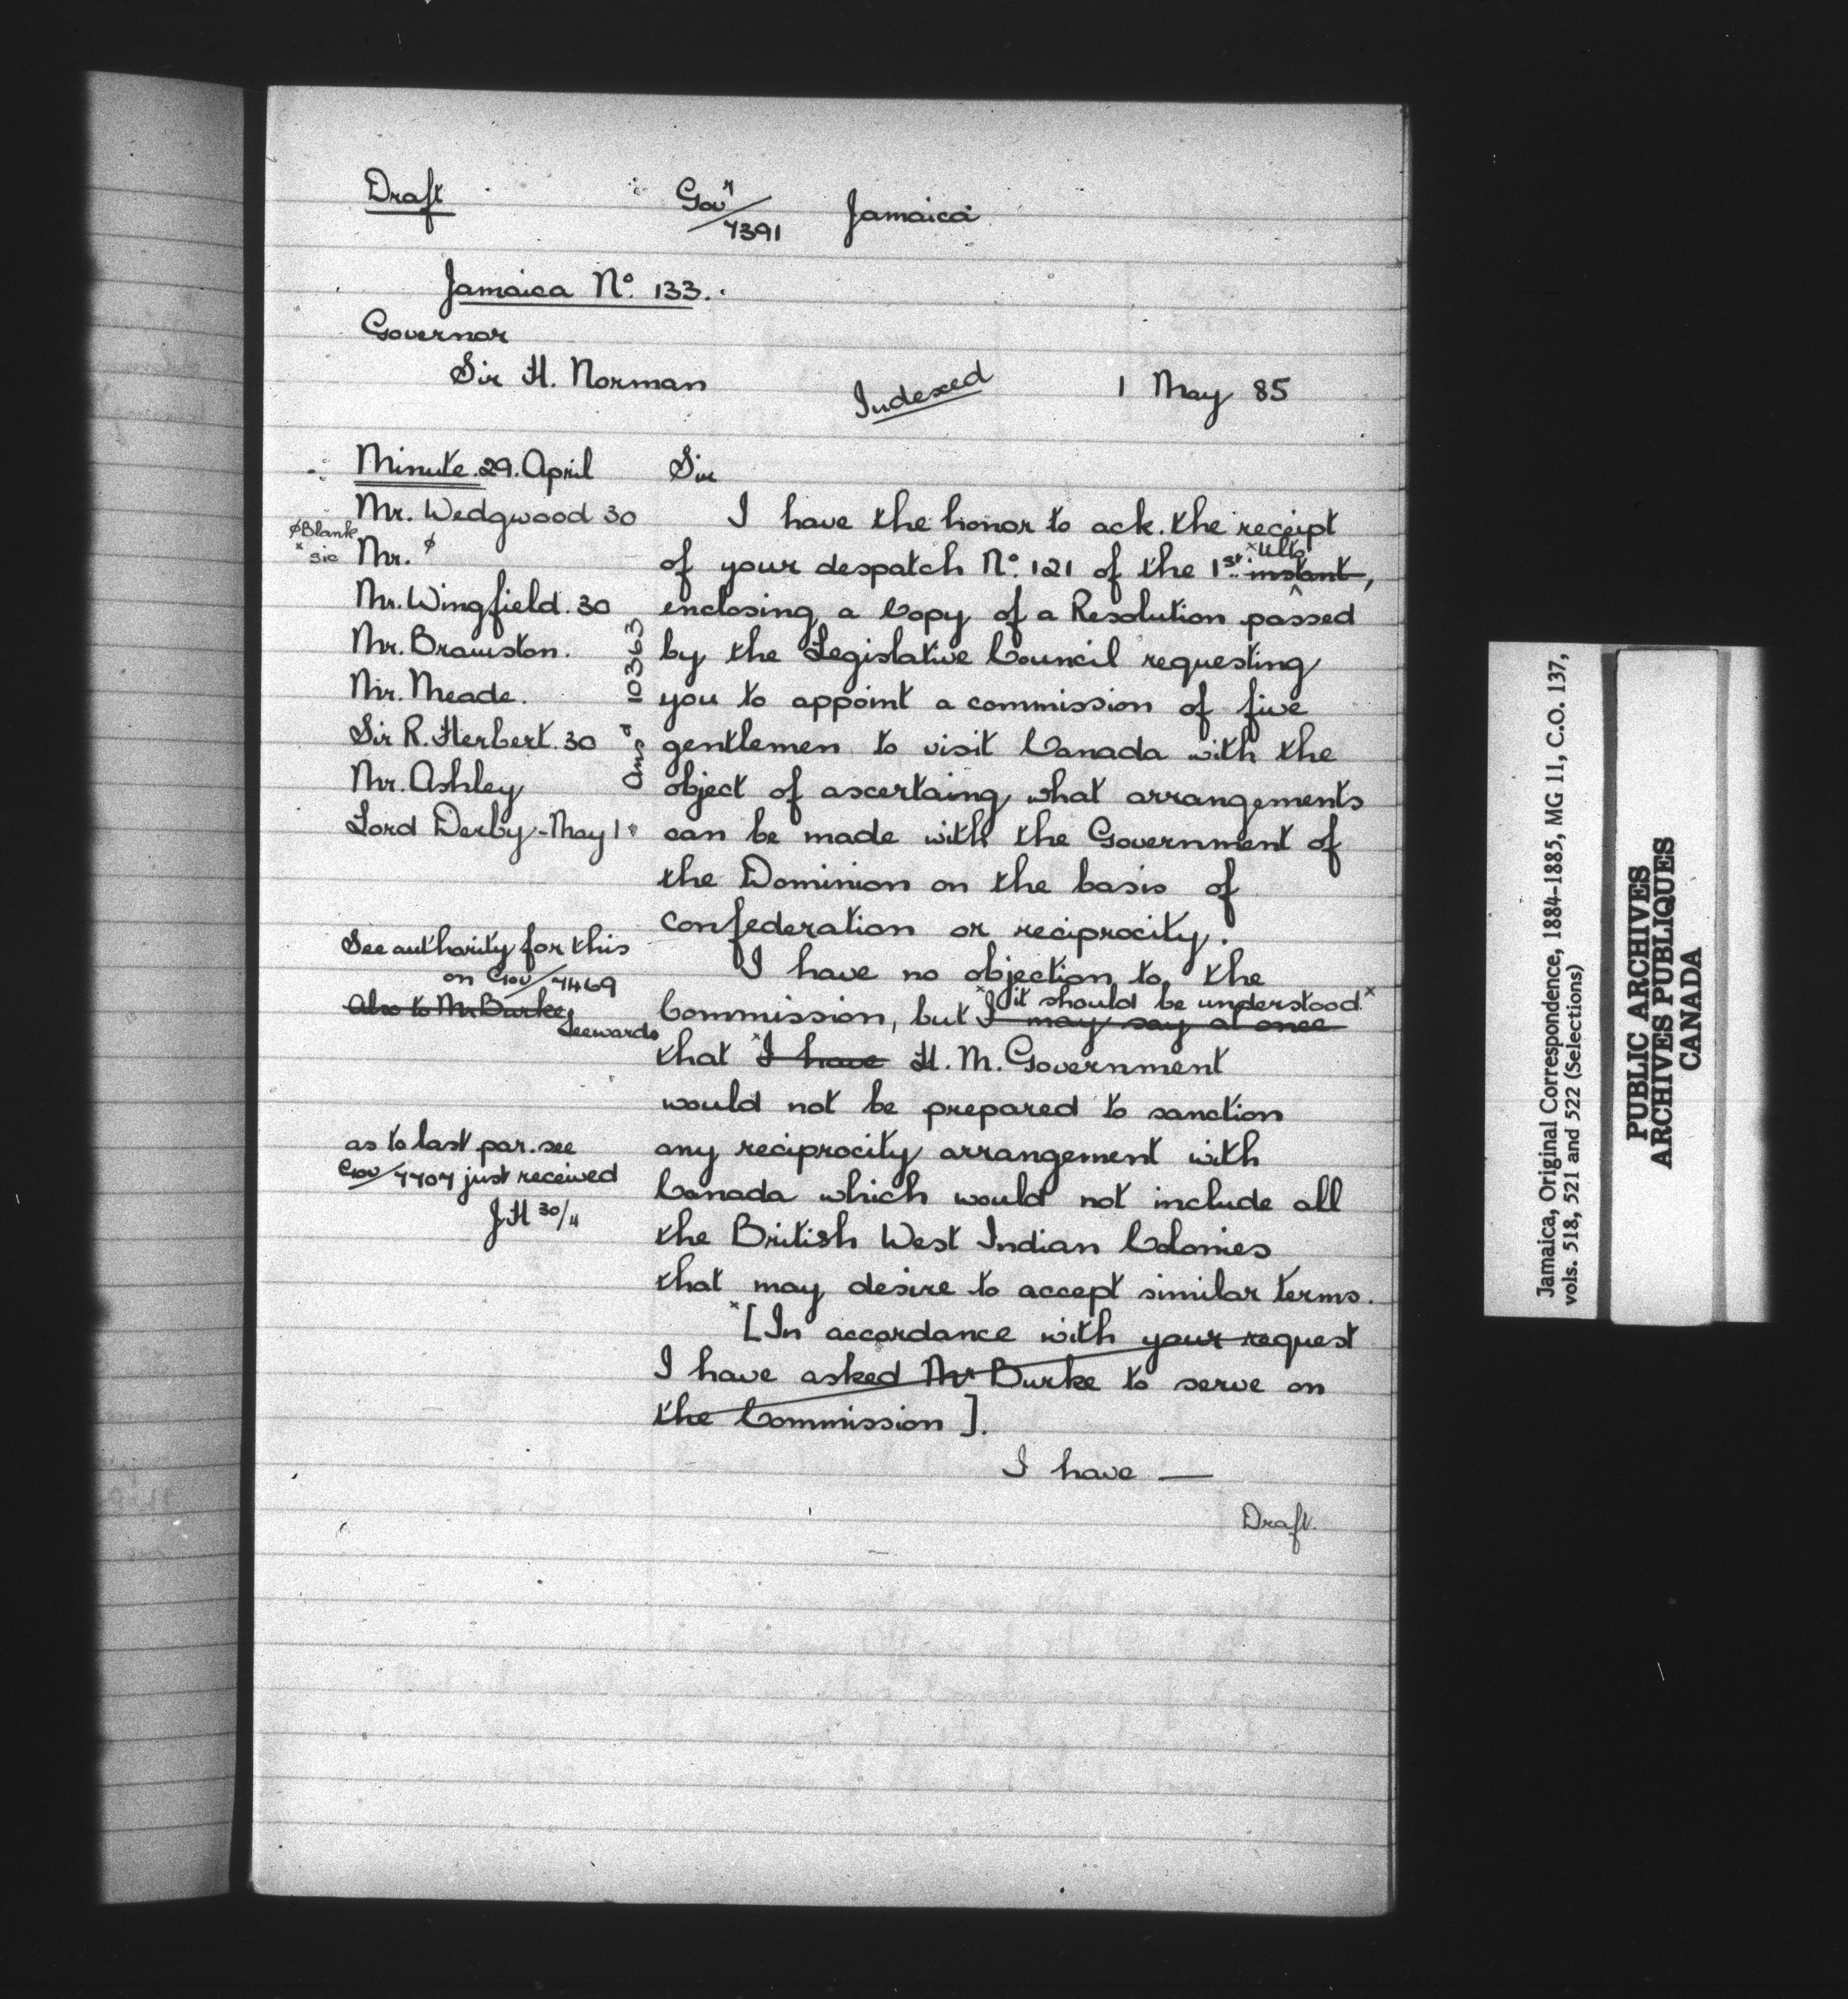 Draft
Govr/7391 Jamaica
Jamaica No. 133.
Governor
Sir H. Norman
Indexed
1 May 85
Minute. 29. April
Mr. Wedgwood 30
ø Blank
x sic
Mr. ø
Mr. Wingfield. 30
Mr. Bramston.
Mr. Meade.
Sir R. Herbert. 30
Mr. Ashley
Lord Derby - May 1
Ansd 10363
See authority for this
on Gov/7469
Also to Mr Burke
Leewards
as to last par. see
Gov/7707 just received
J.H 30/4
Sir
I have the honor to ack. the receipt
of your despatch No. 121 of the 1st. x Ulto instant,
enclosing a Copy of a Resolution passed
by the Legislative Council requesting
you to appoint a commission of five
gentlemen to visit Canada with the
object of ascertaing what arrangements
can be made with the Government of
the Dominion on the basis of
confederation or reciprocity.
I have no objection to the
x it should be understood x
Commission, but I may say at once
that x I have H. M. Government
would not be prepared to sanction
any reciprocity arrangement with
Canada which would not include all
the British West Indian Colonies
that may desire to accept similar terms.
x [In accordance with your request
I have asked Mr Burke to serve on
the Commission].
I have —
Draft.
Jamaica, Original Correspondence, 1884-1885, MG 11, C.O. 137,
vols. 518, 521 and 522 (Selections)
PUBLIC ARCHIVES
ARCHIVES PUBLIQUES
CANADA